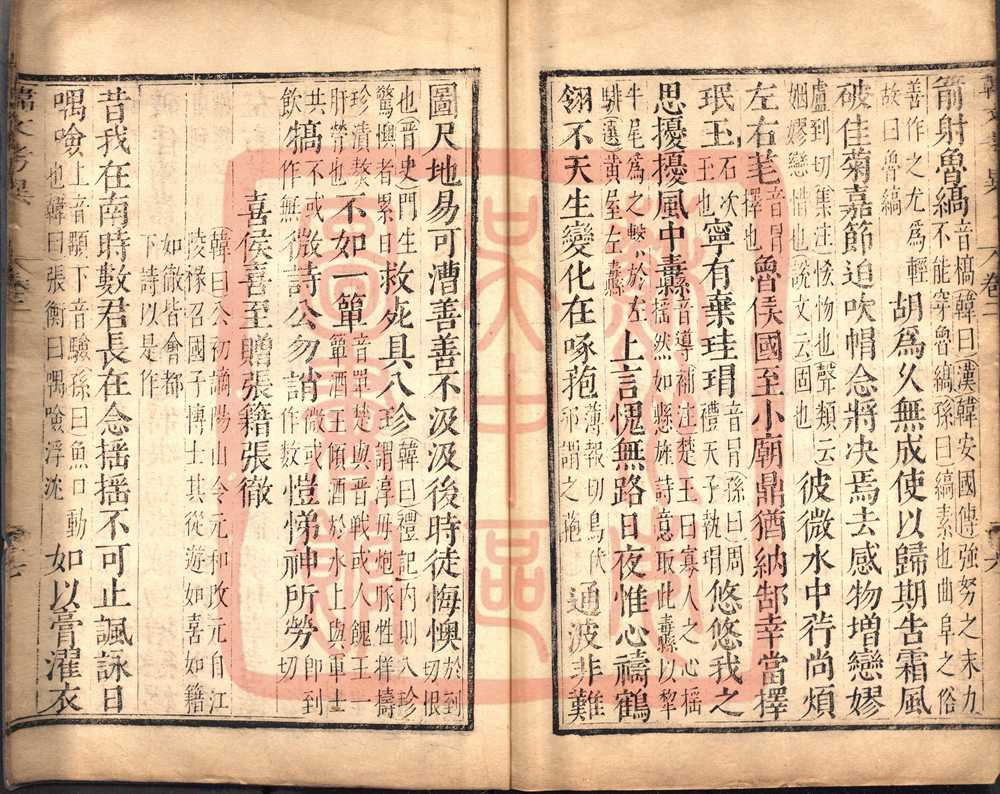 箭射魯縞音槁韓曰漢韓安國傳強努之末力不能穿魯縞孫曰縞素也曲阜之俗
善作之尤爲輕故曰魯縞胡爲久無成使以歸期告霜風
破佳菊嘉節迫吹帽念將决焉去感物增戀嫪
盧到切集注恡物也聲類云婟嫪戀惜也說文云固也彼微水中荇尚煩
左右芼音冒擇也魯侯國至小廟鼎猶納郜幸當擇
珉玉石次玉也寧有棄珪瑁音冒孫曰周禮天子執瑁悠悠我之
思擾擾風中纛音導補注楚王曰寡人之心搖搖然如懸旌詩意取此纛以犛
牛尾爲之繫於左騑選黄屋左纛上言愧無路日夜惟心禱鶴
翎不天生變化在啄菢薄報切鳥伏卵謂之菢通波非難
圖尺地易可漕善善不汲汲後時徒悔懊於到切恨
也晋史門生驚懊者累日救死具八珍韓曰禮記内則八珍謂淳母炮豚牂擣
珍漬熬肝膋也不如一簞音單楚與晋戰或人餽王一簞酒王傾酒於水上與軍士
共飲犒不或作無微詩公勿誚微或作數愷悌神所勞即到切
喜侯喜至贈張籍張徹
韓曰公初謫陽山令元和改元自江
陵掾召國子博士其從遊如喜如籍
如徹皆會都
下詩以是作
昔我在南時數君長在念搖搖不可止諷詠日
喁噞上音顒下音驗孫曰魚口動也韓曰張衡曰喁噞浮沈如以膏濯衣